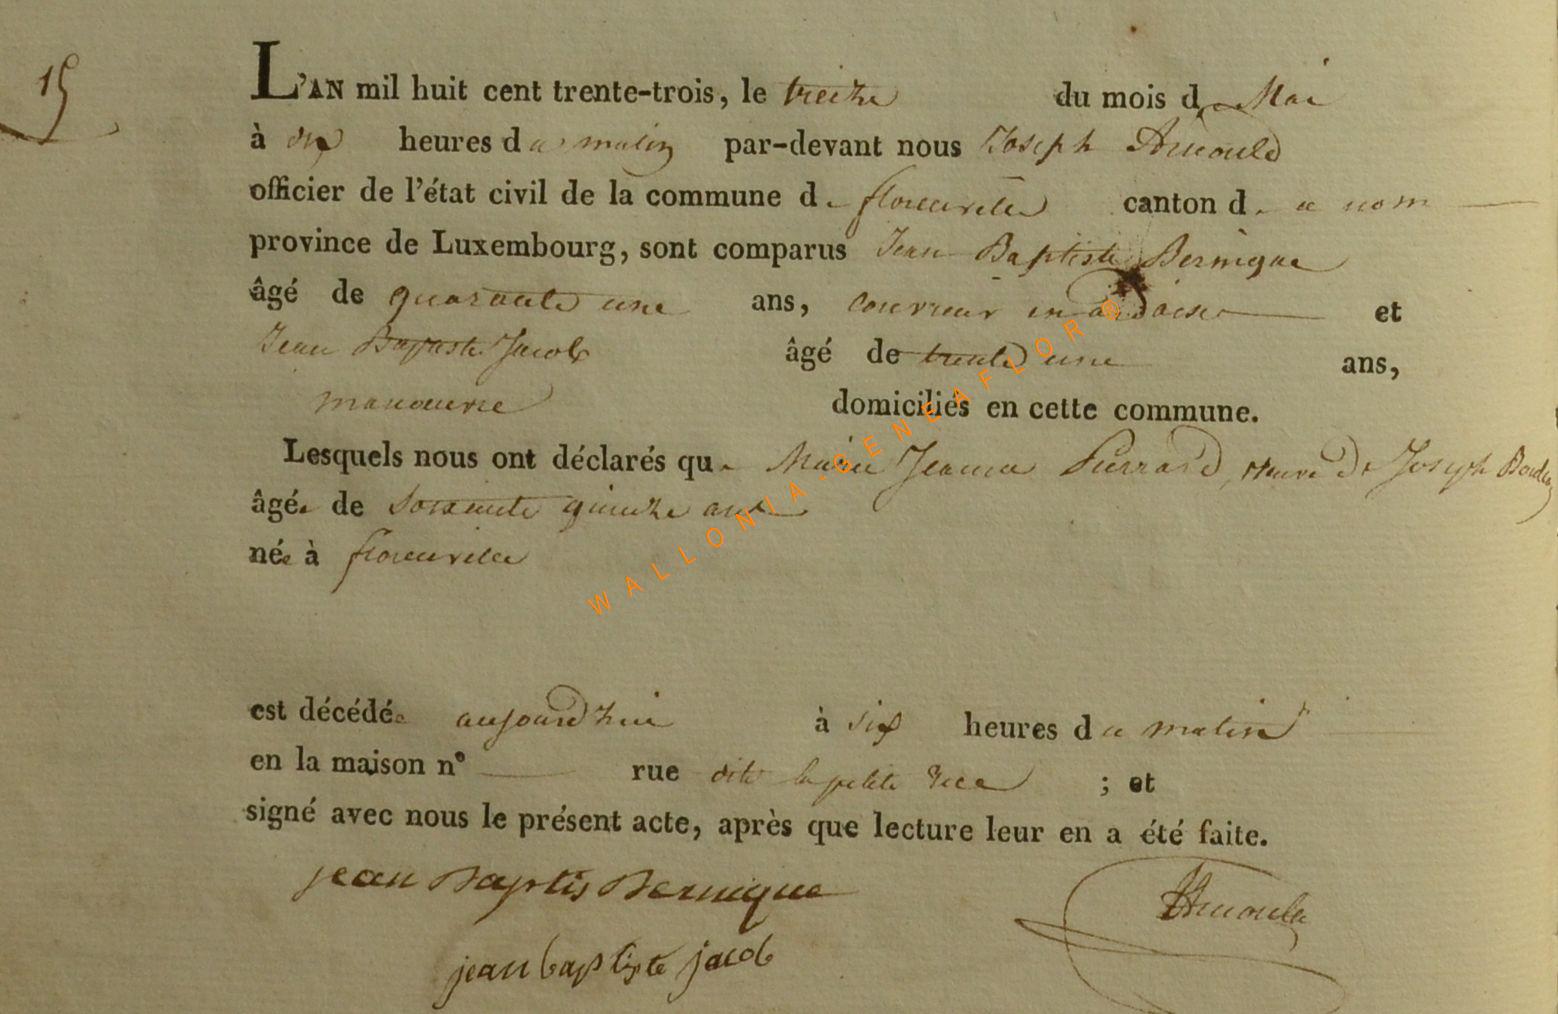 15
L'AN mil huit cent trente-trois, le treize du mois de Mai
à dix heures du matin par-devant nous Joseph Arnould
officier de l'état civil de la commune de florenville canton de ce nom
province de Luxembourg, sont comparus Jean Baptiste Bernique
âgé de quarante une ans, couvreur en ardoises et
Jean Baptiste Jacob âgé de trente une ans,
manouvrie domiciliés en cette commune.
Lesquels nous ont déclarés que Marie Jeanne Pierrard, veuve de Joseph
âgée de soixante quinze ans
née à florenville
est décédée aujourd'hui à six heures du matin
en la maison n° rue dite la petite rue ; et
signé avec nous le présent acte, après que lecture leur en a été faite.
jean Baptis Bernique
Arnould
jean baptiste jacob
WALLONIA-GENEAFLORE